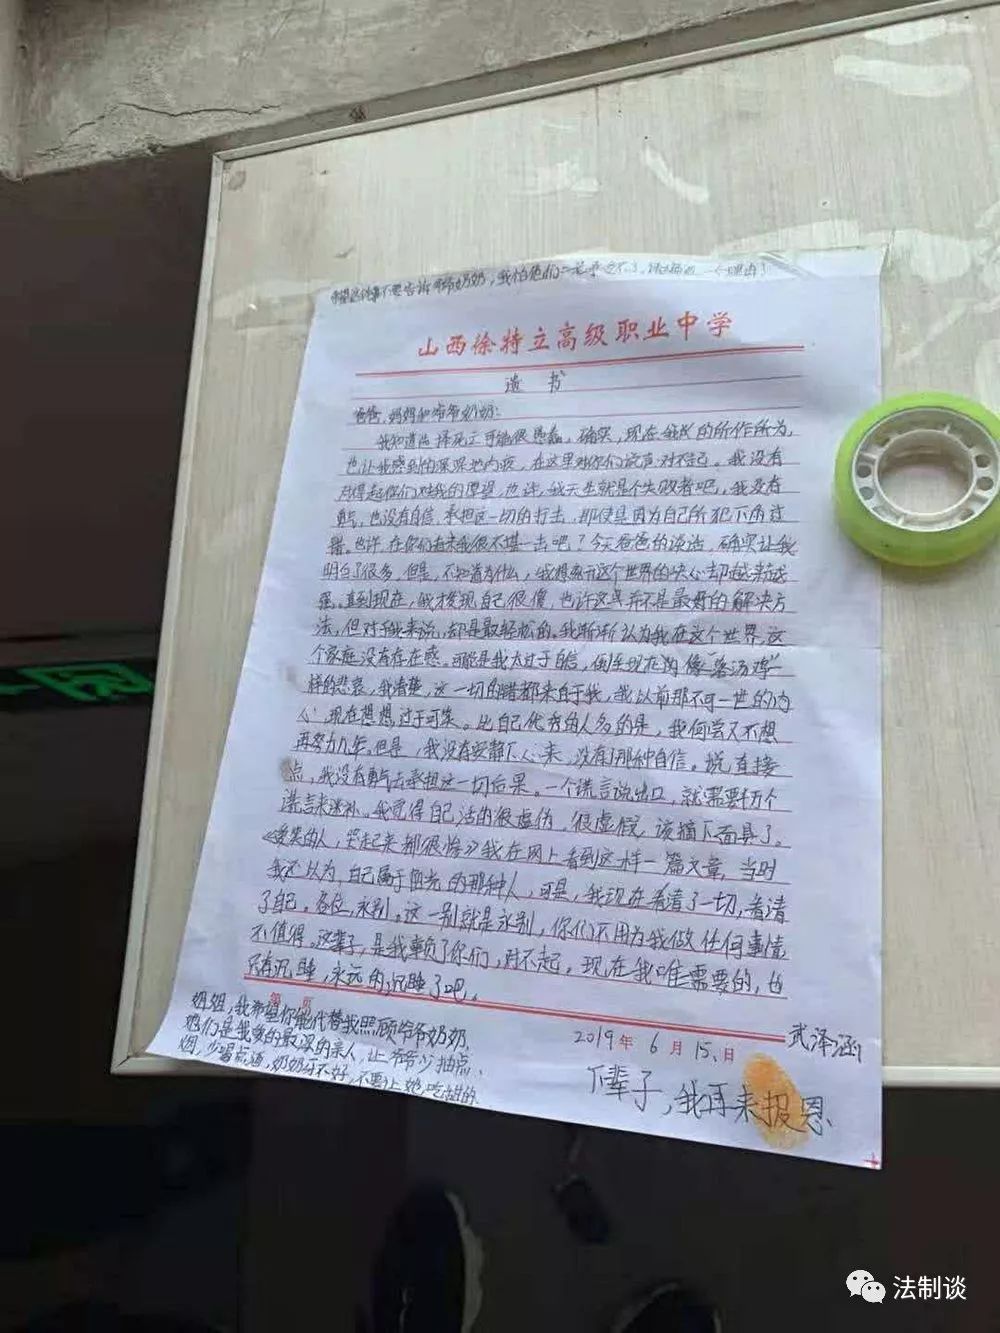 希望这件事不要告诉爷爷奶奶,我怕他们
山西徐特立高级职业中学
遗 书
爸爸,妈妈和爷爷奶奶:
我知道选择死亡可能很愚蠢,确实,现在我的所作所为,
也让我感到深深地内疚,在这里对你们说声对不起。我没有
对得起你们对我的厚望,也许,我天生就是个失败者吧,我没有
勇气,也没有自信,承担这一切的打击,即使是因为自己所犯下的过
错。也许,在你们看来我很不堪一击吧?今天爸爸的谈话,确实让我
明白了很多,但是,不知道为什么,我想离开这个世界的决心却越来越
强。直到现在,我才发现自己很傻,也许这点并不是最好的解决方
法,但对于我来说,却是最轻松的。我渐渐认为我在这个世界,这
个家庭没有存在感。可能是我太过于自信,倒是现在沟像“落汤鸡”一
样的悲哀,我清楚,这一切的错都来自于我,我以前那不可一世的内
心,现在想想过于可笑。比自己优秀的人多的是,我何尝又不想
再努力几年。但是,我没有安静下心来,没有了那种自信。说直接
点,我没有勇气去承担这一切后果。一个谎言说出口,就需要千万个
谎言来弥补。我觉得自己活的很虚伪,很虚假,该摘下面具了。
《爱笑的人,哭起来都很惨》我在网上看到这样一篇文章,当时
我还以为,自己属于阳光的那种人,可是,我现在看清了一切,看清
了自己。各位,永别。这一别就是永别,你们不用为我做任何事情
不值得。这辈子,是我辜负了你们,对不起。现在我唯一需要的,也
只有沉睡,永远的沉睡了吧。
第 页
姐姐,我希望你能代替我照顾爷爷奶奶,
她们是我爱的最深的亲人,让爷爷少抽点
烟,少喝点酒,奶奶身不好,不要让她吃甜的
2019年6月15日
武泽涵
下辈子,我再来报恩
法制谈